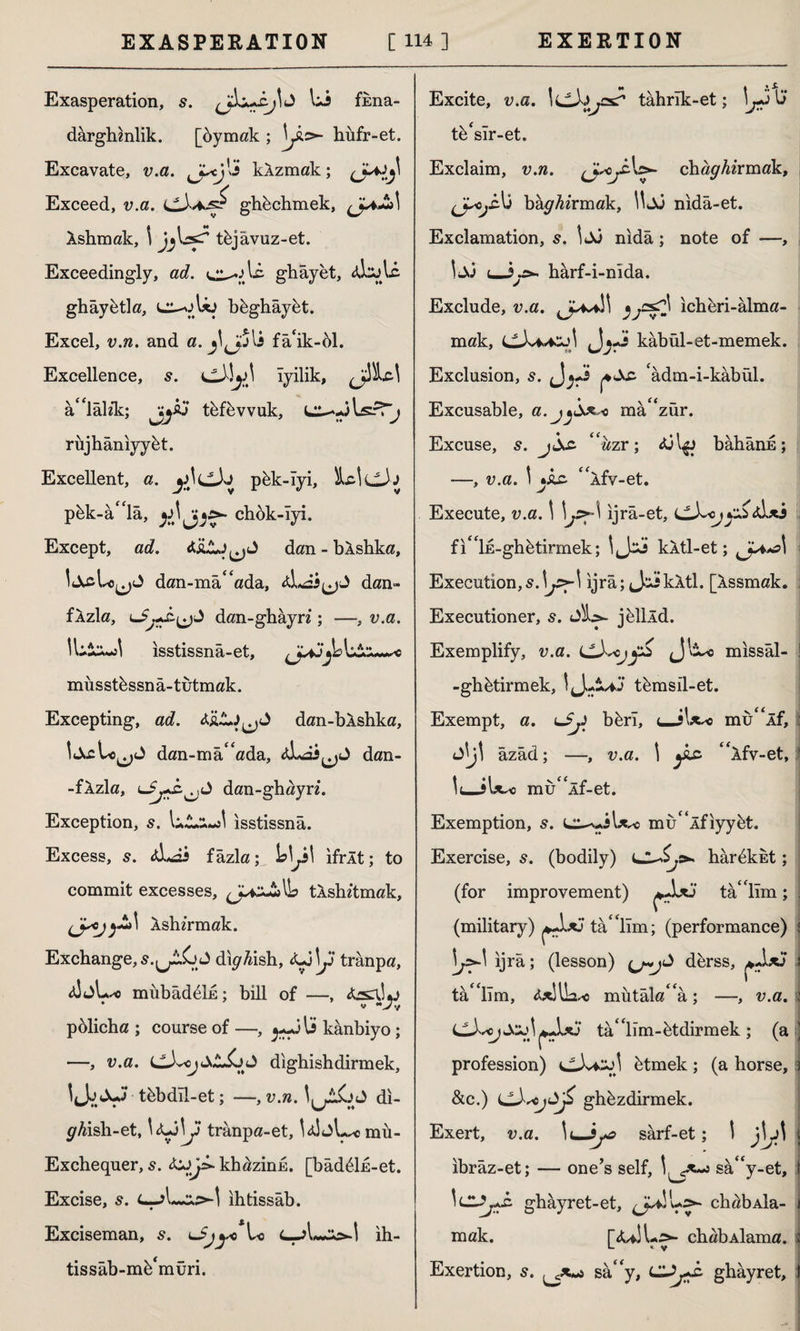 EXASPERATION [ 114 ] EXERTION
Exasperation, s. فنا دارغینلق fᴇna-
dàrghìnlik. [òymak ; حفرا hùfr-et.
Excavate, v.a. قازمق kÀzmak; اویمق
Exceed, v.a. كچمك ghèchmek, اشمق
Àshmak, تجاوز ا tèjāvuz-et.
Exceedingly, ad. غایت ghāyèt, غایتله
ghāyètla, بغایت bèghāyèt.
Excel, v.n. and a. فائق او fā‘ik-òl.
Excellence, s. ایولك īyilik, اعلالق
à“lālik; تفوق tèfèvvuk, رجحانیت
rùjhānìyyèt.
Excellent, a. پك ایو pèk-īyi, پك اعلا
pèk-à“lā, چوق ایو chòk-īyi.
Except, ad. دن بشقه dan - bÀshka,
دن ماعدا dan-mā“ada, دن فضله dan-
fÀzla, دن غیری dan-ghàyri ; —, v.a.
استثنا ا ìsstissnā-et, مستثنا طوتمق
mùsstèssnā-tùtmak.
Excepting, ad. دن بشقه dan-bÀshka,
دن ماعدا dan-mā“ada, دن فضله dan-
-fÀzla, دن غیری dan-ghàyri.
Exception, s. استثنا ìsstissnā.
Excess, s. فضله fàzla; افراط ìfrāt; to
commit excesses, طاشتمق tÀshitmak,
اشورمق Àshirmak.
Exchange, s. دكش dìghish, ترانپه trànpa,
مبادله mùbādélᴇ; bill of —, پولیچه
pòlicha ; course of —, قانبیو kànbiyo ;
—, v.a. دكشدرمك dìghishdirmek,
تبدیل ا tèbdīl-et; —, v.n. دكش ا dì-
ghish-et, ترانپه ا trànpa-et, مبادله ا mù-
Exchequer, s. خزینه khàzinᴇ. [bādélᴇ-et.
Excise, s. احتساب ìhtissāb.
Exciseman, s. احتساب مأموری ìh-
tissāb-mè‘mūri.
Excite, v.a. تحریك ا tàhrīk-et; تأثیر ا
tè‘sīr-et.
Exclaim, v.n. چاغرمق chàghirmak,
باغرمق bàghirmak, ندا ا nìdā-et.
Exclamation, s. ندا nìdā; note of —,
حرف ندا hàrf-i-nìda.
Exclude, v.a. ایچرو المق ìchèri-àlma-
mak, قبول ایتممك kàbūl-et-memek.
Exclusion, s. عدم قبول ‘àdm-i-kàbūl.
Excusable, a. معذور mà“zūr.
Excuse, s. عذر “ùzr; بهانه bàhānᴇ;
—, v.a. عفو ا “Àfv-et.
Execute, v.a. اجرا ا ìjrā-et, فعله كتورمك
fì“lᴇ-ghètirmek; قتل ا kÀtl-et; اصمق
Execution, s. اجرا ìjrā; قتل kÀtl. [Àssmak.
Executioner, s. جلاد jèllĀd.
Exemplify, v.a. مثال كتورمك mìssāl-
-ghètirmek, تمثیل ا tèmsīl-et.
Exempt, a. بری bèrī, معاف mù“āf,
آزاد āzād; —, v.a. عفو ا “Àfv-et,
معاف ا mù“āf-et.
Exemption, s. معافیت mù“āfìyyèt.
Exercise, s. (bodily) حركت hàrékᴇt ;
(for improvement) تعلیم tà“līm ;
(military) تعلیم tà“līm; (performance)
اجرا ìjrā; (lesson) درس dèrss, تعلیم
tà“līm, مطالعه mùtāla“à; —, v.a.
تعلیم ایتدرمك tà“līm-ètdirmek ; (a
profession) ایتمك ètmek ; (a horse,
&c.) كزدرمك ghèzdirmek.
Exert, v.a. صرف ا sàrf-et; ابراز ا
ìbrāz-et; — one's self, سعی ا sà“y-et,
غیرت ا ghàyret-et, چابالمق chàbAla-
mak. [چابالمه chàbAlama.
Exertion, s. سعی sà“y, غیرت ghàyret,